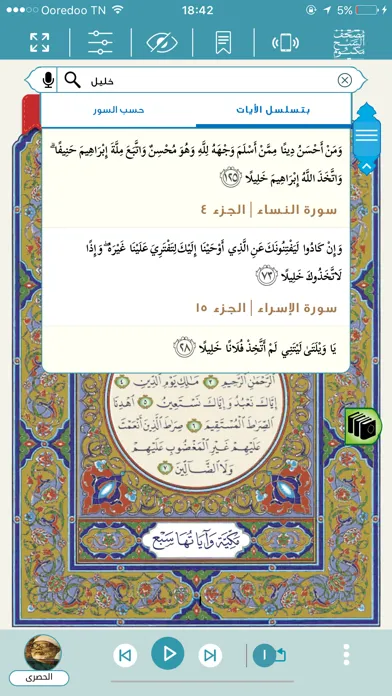 Ooredoo TN 18:42 5%
خليل
بتسلسل الأيات حسب السور
وَمَنْ أَحْسَنُ دِينًا مِمَّنْ أَسْلَمَ وَجْهَهُ لِلَّهِ وَهُوَ مُحْسِنٌ وَاتَّبَعَ مِلَّةَ إِبْرَاهِيمَ حَنِيفًا ۗ
وَاتَّخَذَ اللَّهُ إِبْرَاهِيمَ خَلِيلًا ١٢٥
سورة النساء | الجزء ٤
وَإِنْ كَادُوا لَيَفْتِنُونَكَ عَنِ الَّذِي أَوْحَيْنَا إِلَيْكَ لِتَفْتَرِيَ عَلَيْنَا غَيْرَهُ ۖ وَإِذًا
لَاتَّخَذُوكَ خَلِيلًا ٧٣
سورة الإسراء | الجزء ١٥
يَا وَيْلَتَىٰ لَيْتَنِي لَمْ أَتَّخِذْ فُلَانًا خَلِيلًا ٢٨
الرَّحْمَٰنِ الرَّحِيمِ ٣ مَالِكِ يَوْمِ الدِّينِ ٤
إِيَّاكَ نَعْبُدُ وَإِيَّاكَ نَسْتَعِينُ ٥ اهْدِنَا
الصِّرَاطَ الْمُسْتَقِيمَ ٦ صِرَاطَ الَّذِينَ أَنْعَمْتَ
عَلَيْهِمْ غَيْرِ الْمَغْضُوبِ عَلَيْهِمْ
وَلَا الضَّالِّينَ ٧
مَكِّيَّة وَآيَاتُهَا سَبْع
الحصرى